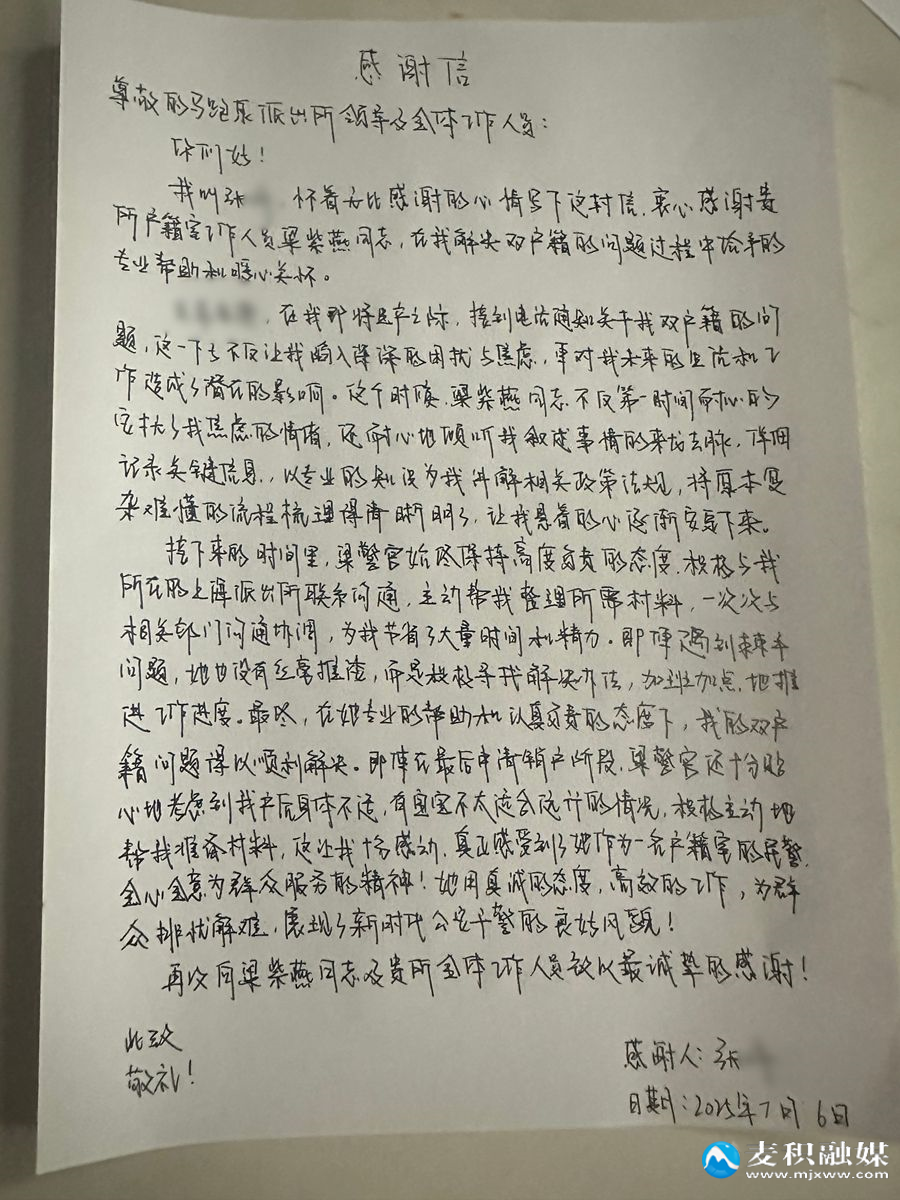 感谢信
尊敬的马跑泉派出所领导及全体工作人员：
你们好！
我叫张 ，怀着无比感谢的心情写下这封信，衷心感谢贵
所户籍室工作人员梁紫燕同志，在我解决双户籍的问题过程中给予的
专业帮助和暖心关怀。
，在我即将是产之际，接到电话通知关于我双户籍的问
题，这一下子不仅让我陷入深深的困扰与焦虑，更对我未来的生活和工
作造成了潜在的影响。这个时候，梁紫燕同志不仅第一时间耐心的
安抚了我焦虑的情绪，还耐心地倾听我叙述事情的来龙去脉，详细
记录关键信息，以专业的知识为我讲解相关政策法规，将原本复
杂难懂的流程梳理得清晰明了，让我悬着的心逐渐安定下来。
接下来的时间里，梁警官始终保持高度负责的态度，积极与我
所在的上海派出所联系沟通，主动帮我整理所需材料，一次次与
相关部门沟通协调，为我节省了大量时间和精力。即使遇到棘手
问题，她也没有丝毫推诿，而是积极寻找解决办法，加班加点地推
进工作进度。最终，在她专业的帮助和认真负责的态度下，我的双户
籍问题得以顺利解决。即使在最后申请销户阶段，梁警官还十分贴
心地考虑到我产后身体不适，有宝宝不太适合远行的情况，积极主动地
帮我准备材料，这让我十分感动，真正感受到了她作为一名户籍室的民警，
全心全意为群众服务的精神！她用真诚的态度，高效的工作，为群
众排忧解难，展现了新时代公安干警的良好风貌！
再次向梁紫燕同志及贵所全体工作人员致以最诚挚的感谢！
此致
敬礼！
感谢人：张
日期：2025年7月6日
麦积融媒
www.mjxww.com